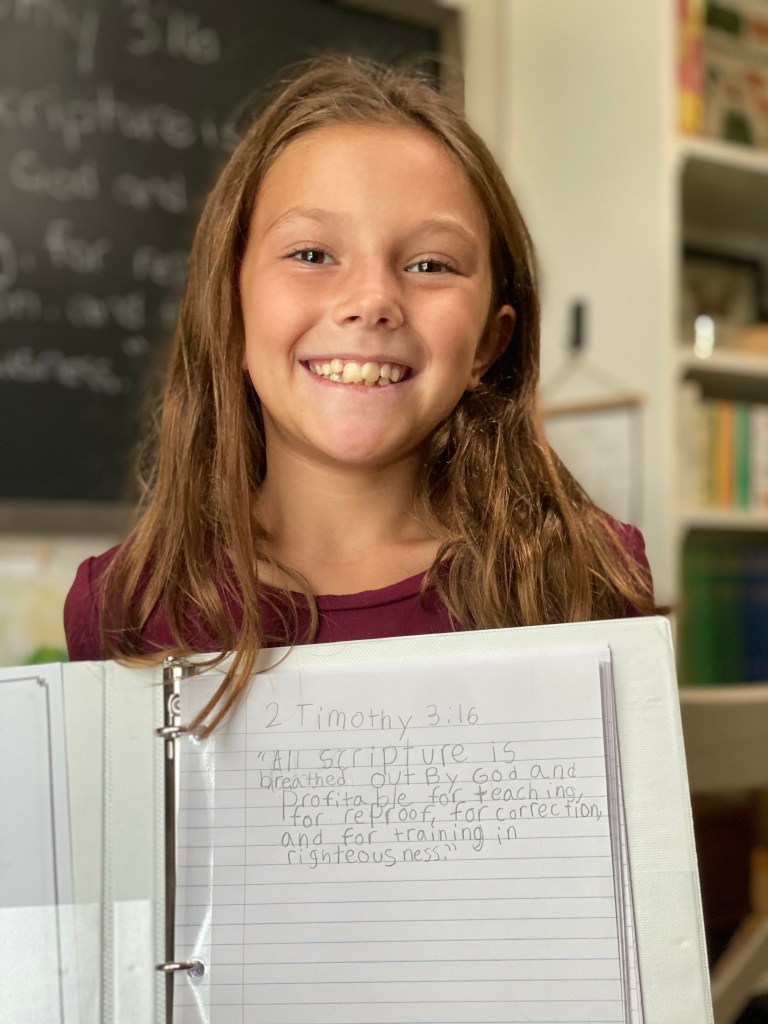 my 3:16
cripture is
God and
for re
and
eousness."
2 Timothy 3:16
"All scripture is
breathed out By God and
Profitable for teaching,
for reproof, for correction,
and for training in
righteousness."